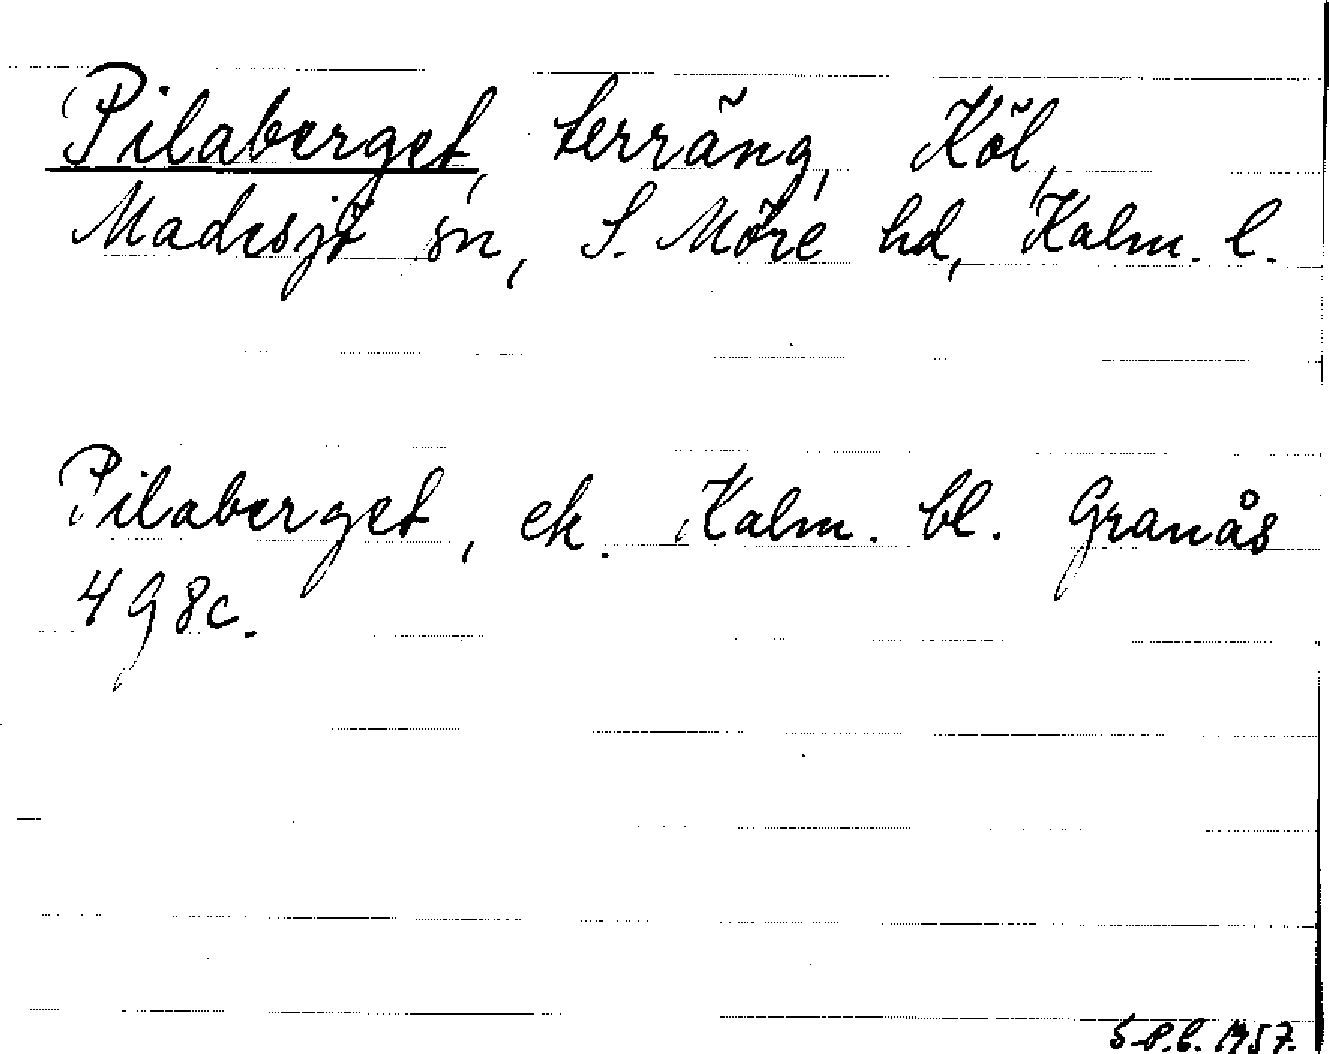 Pilaberget, terräng, Köl,
Madesjö sn, S. Möre hd, Kalm. l.
Pilaberget, ek. Kalm. bl. Granås
4 g 8c.
S.P.B. 1957.